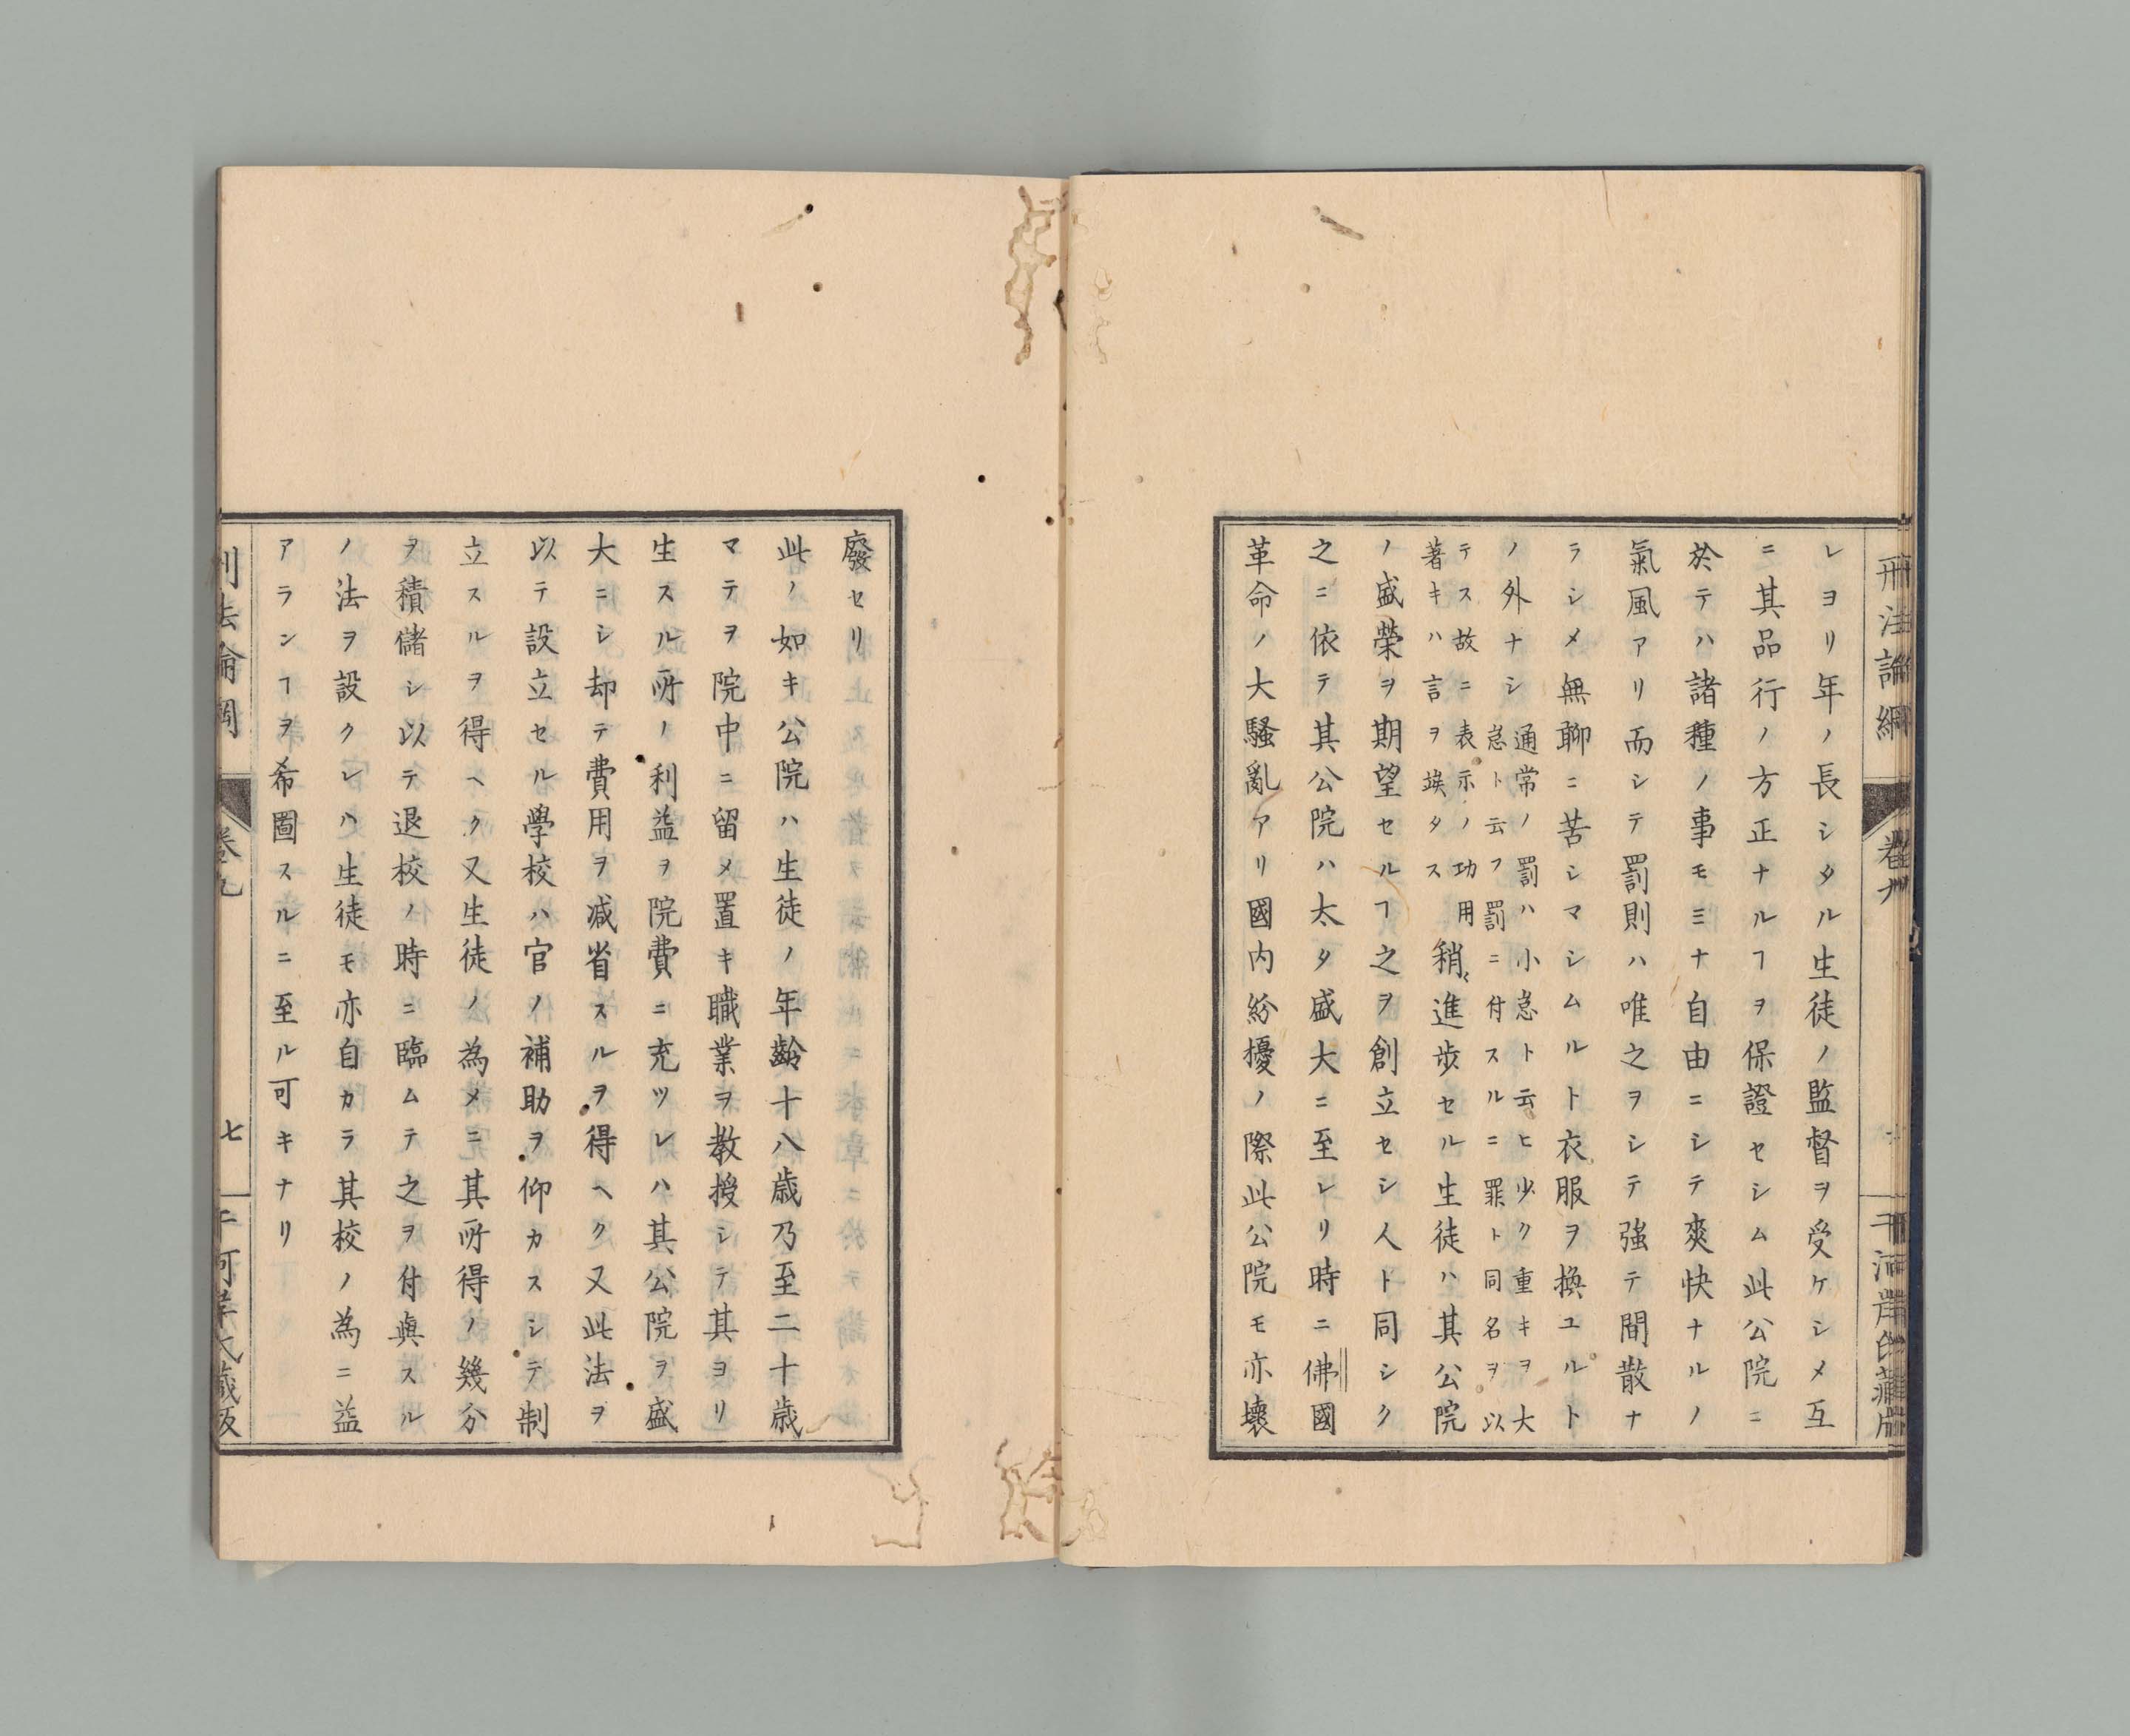 刑法論綱
卷九
レヨリ年ノ長シタル生徒ノ監督ヲ受ケシメ互
ニ其品行ノ方正ナルヿヲ保證セシム此公院ニ
於テハ諸種ノ事モミナ自由ニシテ爽快ナルノ
氣風アリ而シテ罰則ハ唯之ヲシテ強テ間散ナ
ラシメ無聊ニ苦シマシムルト衣服ヲ換ユルト
ノ外ナシ
通常ノ罰ハ小怠ト云ヒ少ク重キヲ大
怠ト云フ罰ニ付スルニ罪ト同名ヲ以
テス故ニ表示ノ功用
著キハ言ヲ竢タス
稍〻進歩セル生徒ハ其公院
ノ盛榮ヲ期望セルヿ之ヲ創立セシ人ト同シク
之ニ依テ其公院ハ太タ盛大ニ至レリ時ニ佛國
革命ノ大騷亂アリ國内紛擾ノ際此公院モ亦壞
廢セリ
此ノ如キ公院ハ生徒ノ年齡十八歳乃至二十歳
マテヲ院中ニ留メ置キ職業ヲ教授シテ其ヨリ
生スル所ノ利益ヲ院費ニ充ツレハ其公院ヲ盛
大ニシ却テ費用ヲ减省スルヲ得ヘク又此法ヲ
以テ設立セル學校ハ官ノ補助ヲ仰カスシテ制
立スルヲ得ヘク又生徒ノ為メニ其所得ノ幾分
ヲ積儲シ以テ退校ノ時ニ臨ムテ之ヲ付與スル
ノ法ヲ設クレハ生徒モ亦自カラ其校ノ為ニ益
アランヿヲ希圖スルニ至ル可キナリ
刑法論綱
卷九
七
千河岸氏藏版